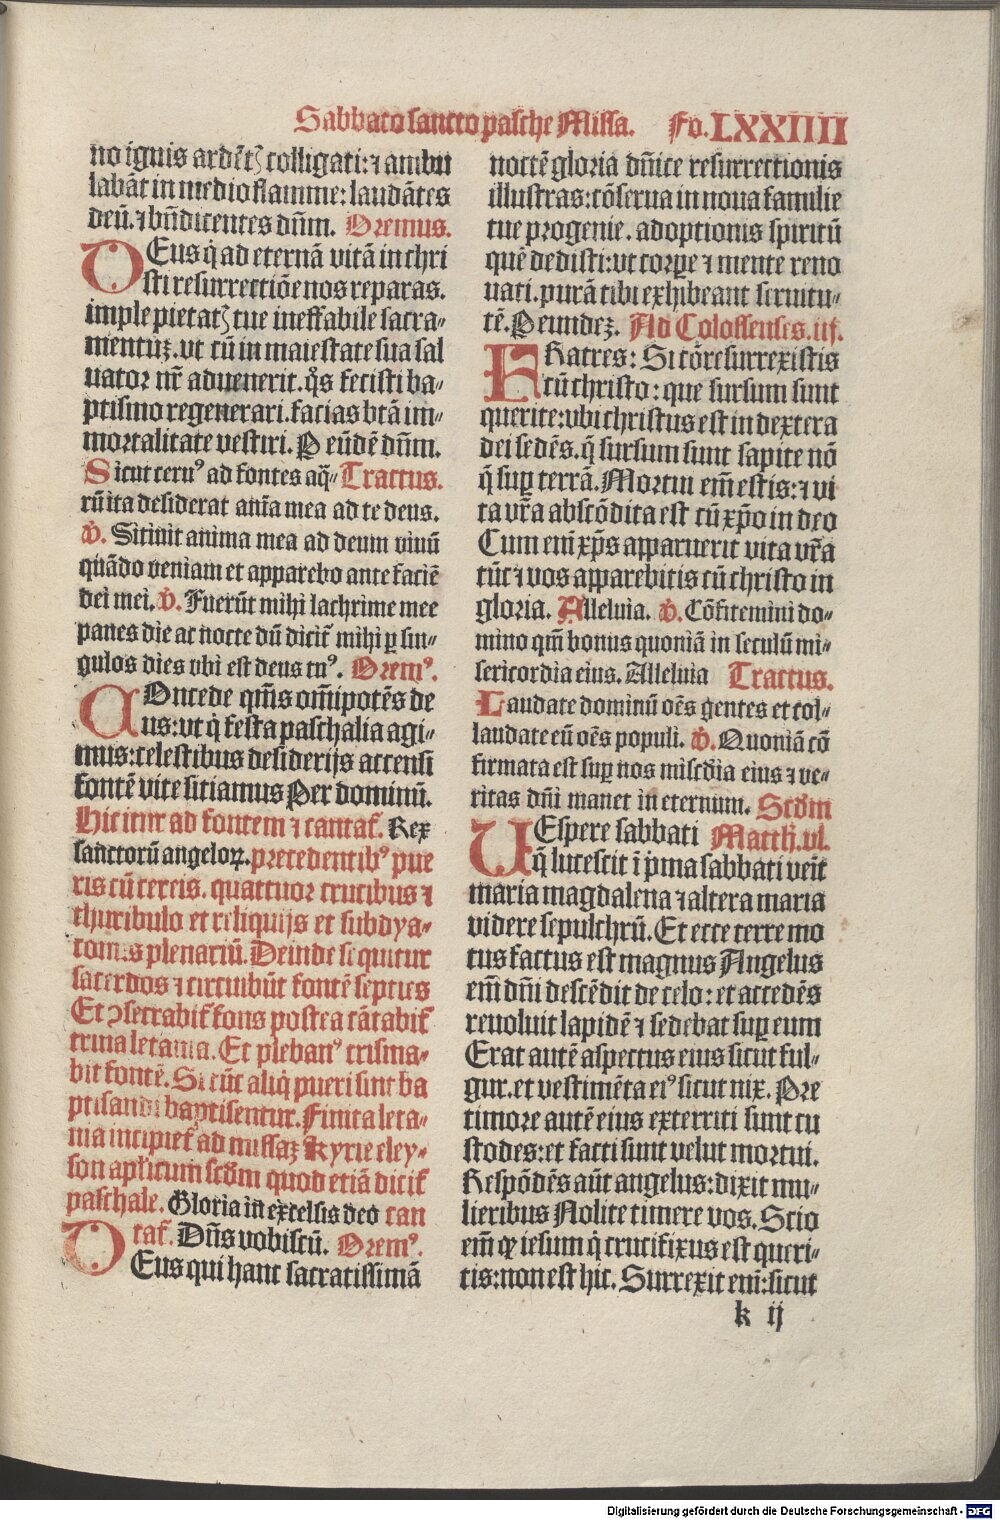 Sabbato sancto pasche Missa. Fo. LXXIIII
no ignis ardētꝫ colligati: ⁊ ambu
labāt in medio flamme: laudātes
deū. ⁊ bn̄dicentes dn̄m. Oremus.
DEus q̇ ad eternā vitā in chri
sti resurrectiōe nos reparas.
imple pietatꝫ tue ineffabile sacra-
mentuꝫ. vt cū in maiestate sua sal
uator nr̄ aduenerit. q̊s fecisti ba-
ptismo regenerari. facias btā im-
mortalitate vestiri. P eūdē dn̄m.
Sicut ceru⁹ ad fontes aq̄- Tractus.
rū ita desiderat anīa mea ad te deus.
℣. Sitiuit anima mea ad deum viuū
quādo veniam et apparebo ante faciē
dei mei. ℣. Fuerūt mihi lachrime mee
panes die ac nocte dū dicit̄ mihi ꝑ sin-
gulos dies vbi est deus tu⁹. Orem⁹.
COncede qm̄s om̄ipotēs de
us: vt q̇ festa paschalia agi-
mus: celestibus desiderijs accensi
fontē vite sitiamus Per dominū.
Hic itur ad fontem ⁊ cantat̄. Rex
sanctorū angeloꝝ. precedentib⁹ pue
ris cū cereis. quattuor crucibus ⁊
thuribulo et reliquijs et subdya-
conus plenariū. Deinde sequitur
sacerdos ⁊ circuibūt fontē septies
Et ꝯsecrabit̄ fons postea cātabit̄
trina letania. Et pleban⁹ crisma-
bit fontē. Si tūc aliq̇ pueri sint ba
ptisandi baptisentur. Finita leta-
nia incipiet̄ ad missaꝫ Kyrie eley-
son apl̄icum scd̄m quod etiā dicit̄
paschale. Gloria in excelsis deo can
tat̄. Dn̄s vobiscū. Orem⁹.
DEus qui hanc sacratissimā
noctē gloria dn̄ice resurrectionis
illustras: cōserua in noua familie
tue progenie. adoptionis spiritū
quē dedisti: vt corꝑe ⁊ mente reno
uati. purā tibi exhibeant seruitu-
tē. P eundeꝫ. Ad Colossenses. iij.
FRatres: Si cōresurrexistis
cū christo: que sursum sunt
querite: vbi christus est in dextera
dei sedēs. q̄ sursum sunt sapite nō
q̄ suꝑ terrā. Mortui em̄ estis: ⁊ vi
ta vr̄a abscōdita est cū xp̄o in deo
Cum em̄ xp̄s apparuerit vita vr̄a
tūc ⁊ vos apparebitis cū christo in
gloria. Alleluia. ℣. Cōfitemini do-
mino qm̄ bonus quoniā in seculū mi-
sericordia eius. Alleluia Tractus.
Laudate dominū oēs gentes et col-
laudate eū oēs populi. ℣. Quoniā cō
firmata est suꝑ nos miscd̄ia eius ⁊ ve-
ritas dn̄i manet in eternum. Scd̄m
VEspere sabbati Matth̄. vl.
q̄ lucescit ī pͥma sabbati veīt
maria magdalena ⁊ altera maria
videre sepulchrū. Et ecce terre mo
tus factus est magnus Angelus
em̄ dn̄i descēdit de celo: et accedēs
reuoluit lapidē ⁊ sedebat suꝑ eum
Erat autē aspectus eius sicut ful-
gur. et vestimēta ei⁹ sicut nix. Pre
timore autē eius exterriti sunt cu
stodes: et facti sunt velut mortui.
Respōdēs aūt angelus: dixit mu-
lieribus Nolite timere vos. Scio
em̄ ꝙ iesum q̇ crucifixus est queri-
tis: non est hic. Surrexit em̄: sicut
k ij
Digitalisierung gefördert durch die Deutsche Forschungsgemeinschaft - DFG